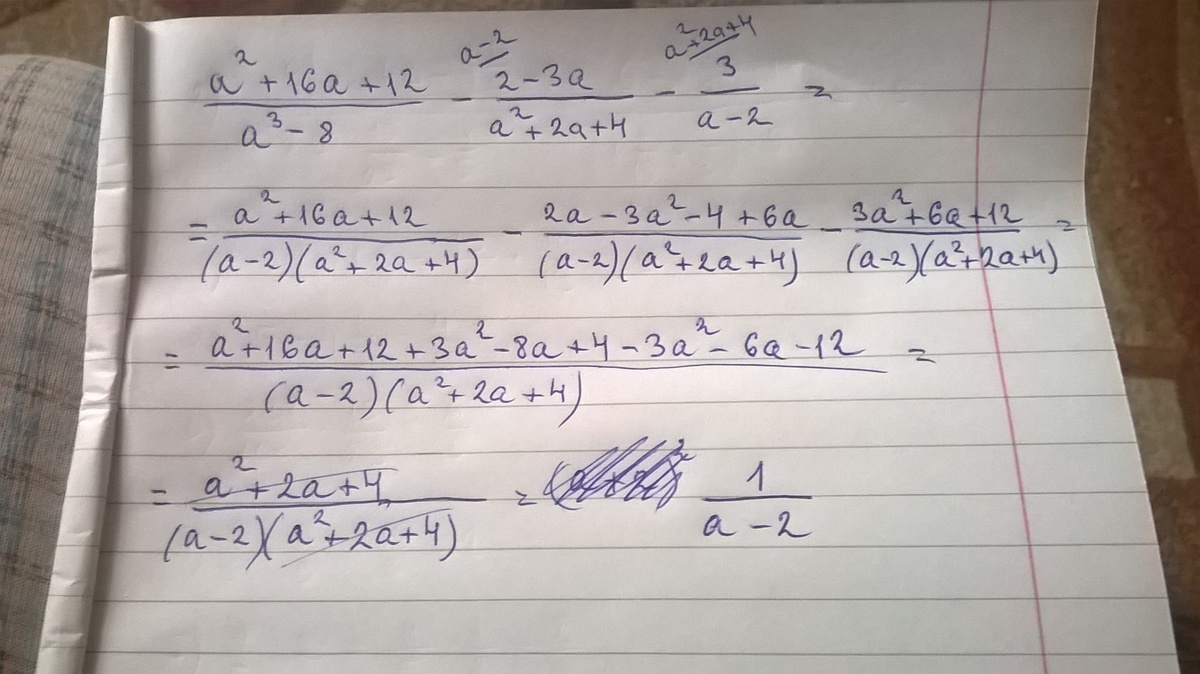 (a² + 16a + 12)/(a³ - 8) - (2 - 3a)/(a² + 2a + 4) - 3/(a - 2) =
a-2 a²+2a+4
= (a² + 16a + 12)/((a-2)(a² + 2a + 4)) - (2a - 3a² - 4 + 6a)/((a-2)(a² + 2a + 4)) - (3a² + 6a + 12)/((a-2)(a² + 2a + 4)) =
= (a² + 16a + 12 + 3a² - 8a + 4 - 3a² - 6a - 12)/((a-2)(a² + 2a + 4)) =
= (a² + 2a + 4)/((a-2)(a² + 2a + 4)) = 1/(a - 2)